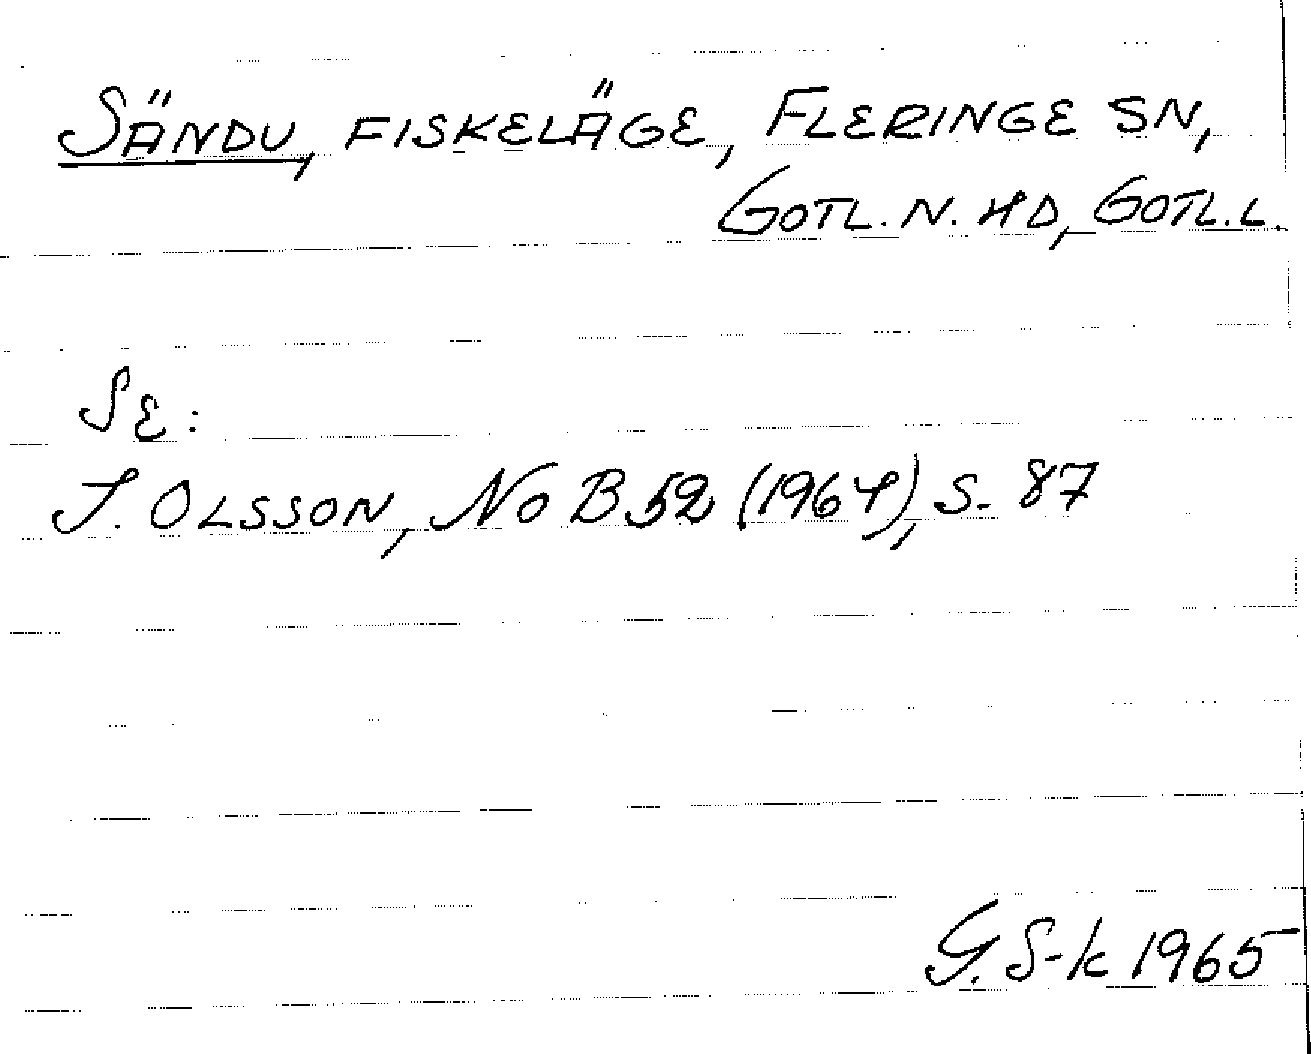 SÄNDU, FISKELÄGE, FLERINGE SN,
GOTL. N. HD, GOTL. L.
SE:
I. OLSSON, No B 52 (1964), S. 87
G. S-k 1965